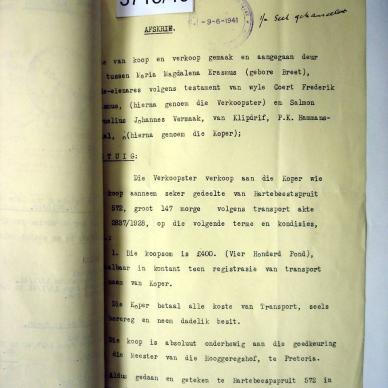 5718/40
-9-6-1941
AFSKRIF.
van koop en verkoop gemaak en aangegaan deur
tussen Maria Magdalena Erasmus (gebore Breet),
e-eienares volgens testament van wyle Coert Frederik
smus, (hierna genoem die Verkoopster) en Salmon
nelius Johannes Vermaak, van Klipdrif, P.K. Hammans-
al, (hierna genoem die Koper);
T U I G:
Die Verkoopster verkoop aan die Koper wie
koop aanneem seker gedeelte van Hartebeestspruit
572, groot 147 morge volgens transport akte
2837/1928, op die volgende terme en kondisies,
1. Die koopsom is £400. (Vier Honderd Pond),
albaar in kontant teen registrasie van transport
naam van Koper.
Die Koper betaal alle koste van Transport, seels
herereg en neem dadelik besit.
Die koop is absoluut onderhewig aan die goedkeuring
die Meester van die Hooggeregshof, te Pretoria.
Aldus gedaan en geteken te Hartebeestspruit 572 in